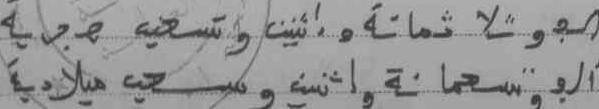 الجو ثلاثمائة و اثنين و تسعين هجرية
الف و تسعمائة و اثنين و سبعين ميلادية